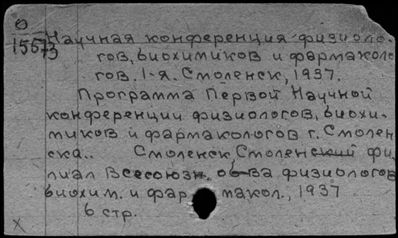 О
15573
Научная конференция физиоло-
гов, биохимиков и фармаколо
гов. 1-я. Смоленск, 1937.
Программа Первой Научной
конференции физиологов, биохи-
миков и фармакологов г. Смолен
ска.. Смоленск, Смоленский фи
лиал Всесоюзн. об-ва физиологов
биохим. и фар макол., 1937
6 стр.
X